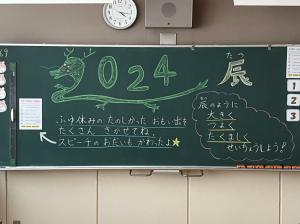 2024
たつ
辰
ふゆ休みの たのしかった おもい出を
たくさん きかせてね。
スピーチの おだいも かわったよ
辰のように
大きく
つよく
たくましく
せいちょうしよう!
1
2
3